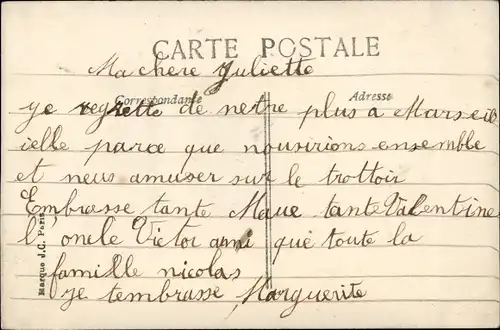 CARTE POSTALE
Ma chere Juliette
Correspondance
Adresse
je regrette de netre plus a Marseil
ielle parce que nousirions ensemble
et neus amuser sur le trottoir
Embrasse tante Maue tante Valentine
l oncle Victor ami que toute la
famille nicolas
je tembrasse Marguerite
Marque J.C. Paris